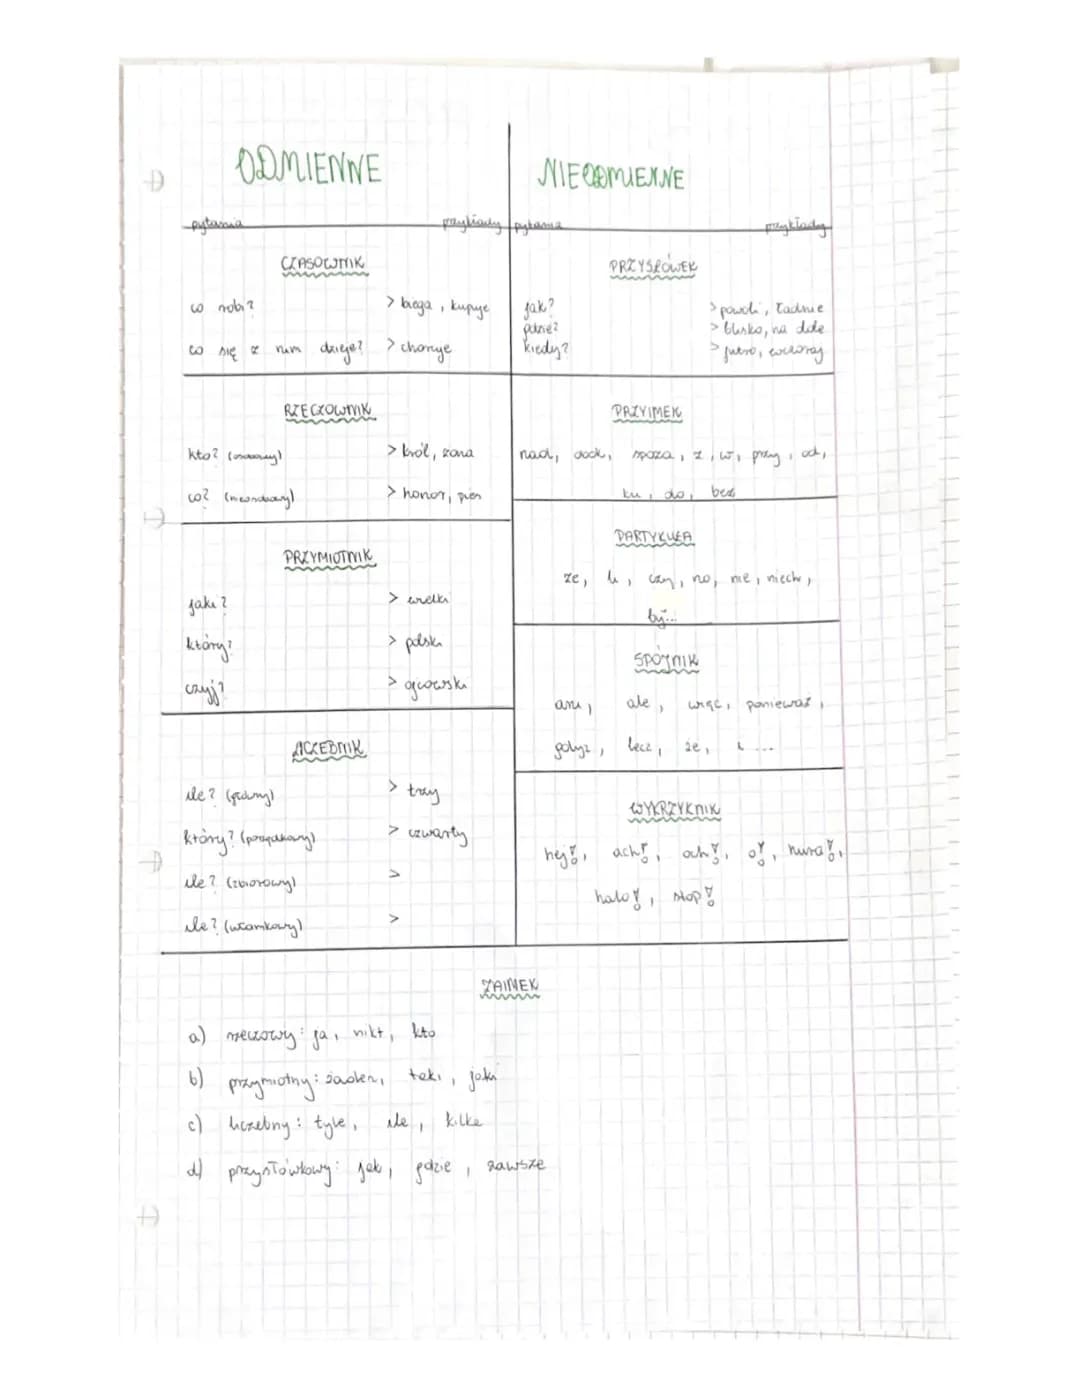 ODMIENNE
pytania przykłady
CZASOWNIK
co robi? > biega, kupuje
co się z nim dzieje? > choruje
RZECZOWNIK
kto? (osobowy) > król, żona
co? (nieosobowy) > honor, pies
PRZYMIOTNIK
jaki? > wielki
który? > polski
czyj? > ojcowski
LICZEBNIK
ile? (główny) > trzy
który? (porządkowy) > czwarty
ile? (zbiorowy) >
ile? (ułamkowy) >
NIEODMIENNE
pytania przykłady
PRZYSŁÓWEK
jak? > powoli, ładnie
gdzie? > blisko, na dole
kiedy? > jutro, wczoraj
PRZYIMEK
nad, spoza, z, w, przy, od,
ku, do, bez
PARTYKUŁA
że, li, czy, no, nie, niech,
by...
SPÓJNIK
ani, ale, więc, ponieważ,
gdyż, lecz, że, i ...
WYKRZYKNIK
hej!, ach!, och!, o!, hura!,
halo!, stop!
ZAIMEK
a) rzeczowy: ja, nikt, kto
b) przymiotny: żaden, taki, jaki
c) liczebny: tyle, ile, kilka
d) przysłówkowy: jak, gdzie, zawsze